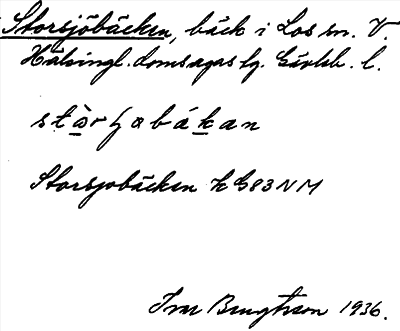 Storsjöbäcken, bäck i Los sn. V.
Hälsingl. domsagas tg. Gävleb. l.
Storsjobäcken k G83NM
Ivar Bengtsson 1936.